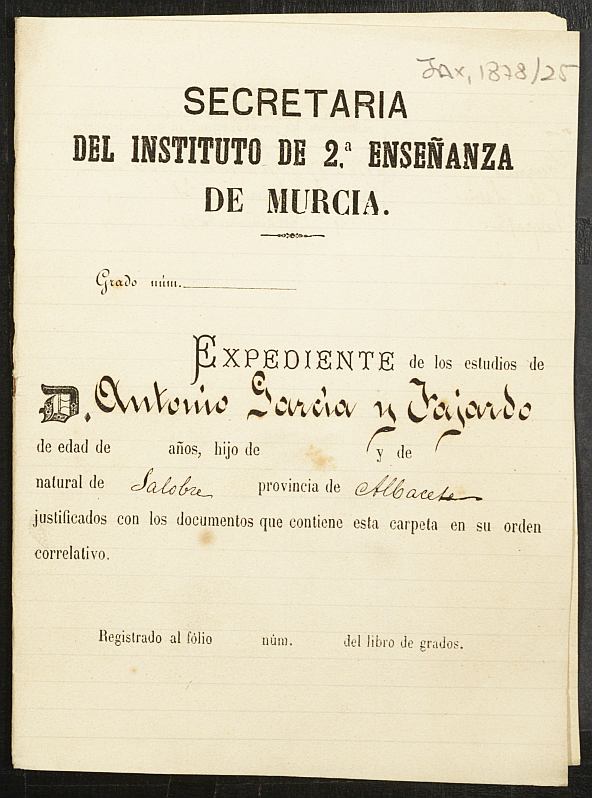 JAX, 1878/25
SECRETARIA
DEL INSTITUTO DE 2.ª ENSEÑANZA
DE MURCIA.
Grado núm.
EXPEDIENTE de los estudios de
D. Antonio Garcia y Fajardo
de edad de años, hijo de y de
natural de Salobre provincia de Albacete
justificados con los documentos que contiene esta carpeta en su orden
correlativo.
Registrado al fólio núm. del libro de grados.